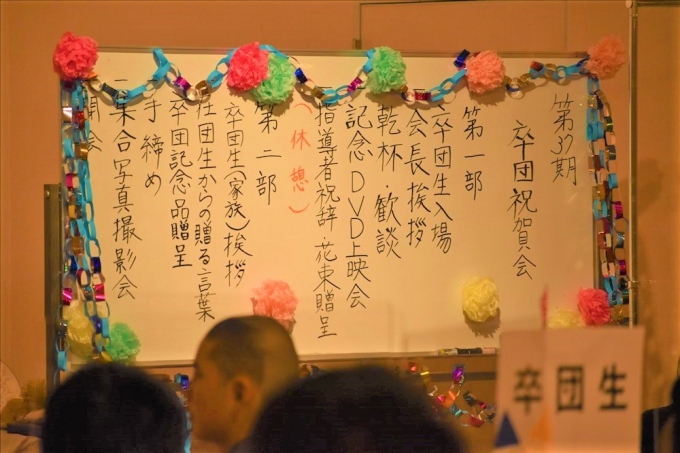 第37期
卒団祝賀会
第一部
卒団生入場
会長挨拶
乾杯・歓談
記念DVD上映会
指導者祝辞・花束贈呈
(休憩)
第二部
卒団生(家族)挨拶
在団生からの贈る言葉
卒団記念品贈呈
手締め
集合写真撮影会
閉会
卒団生